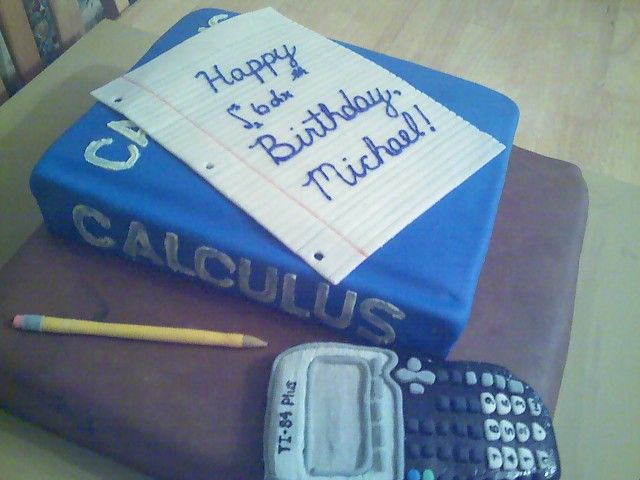 Happy
Birthday,
Michael!
CALCULUS
TI-84 Plus